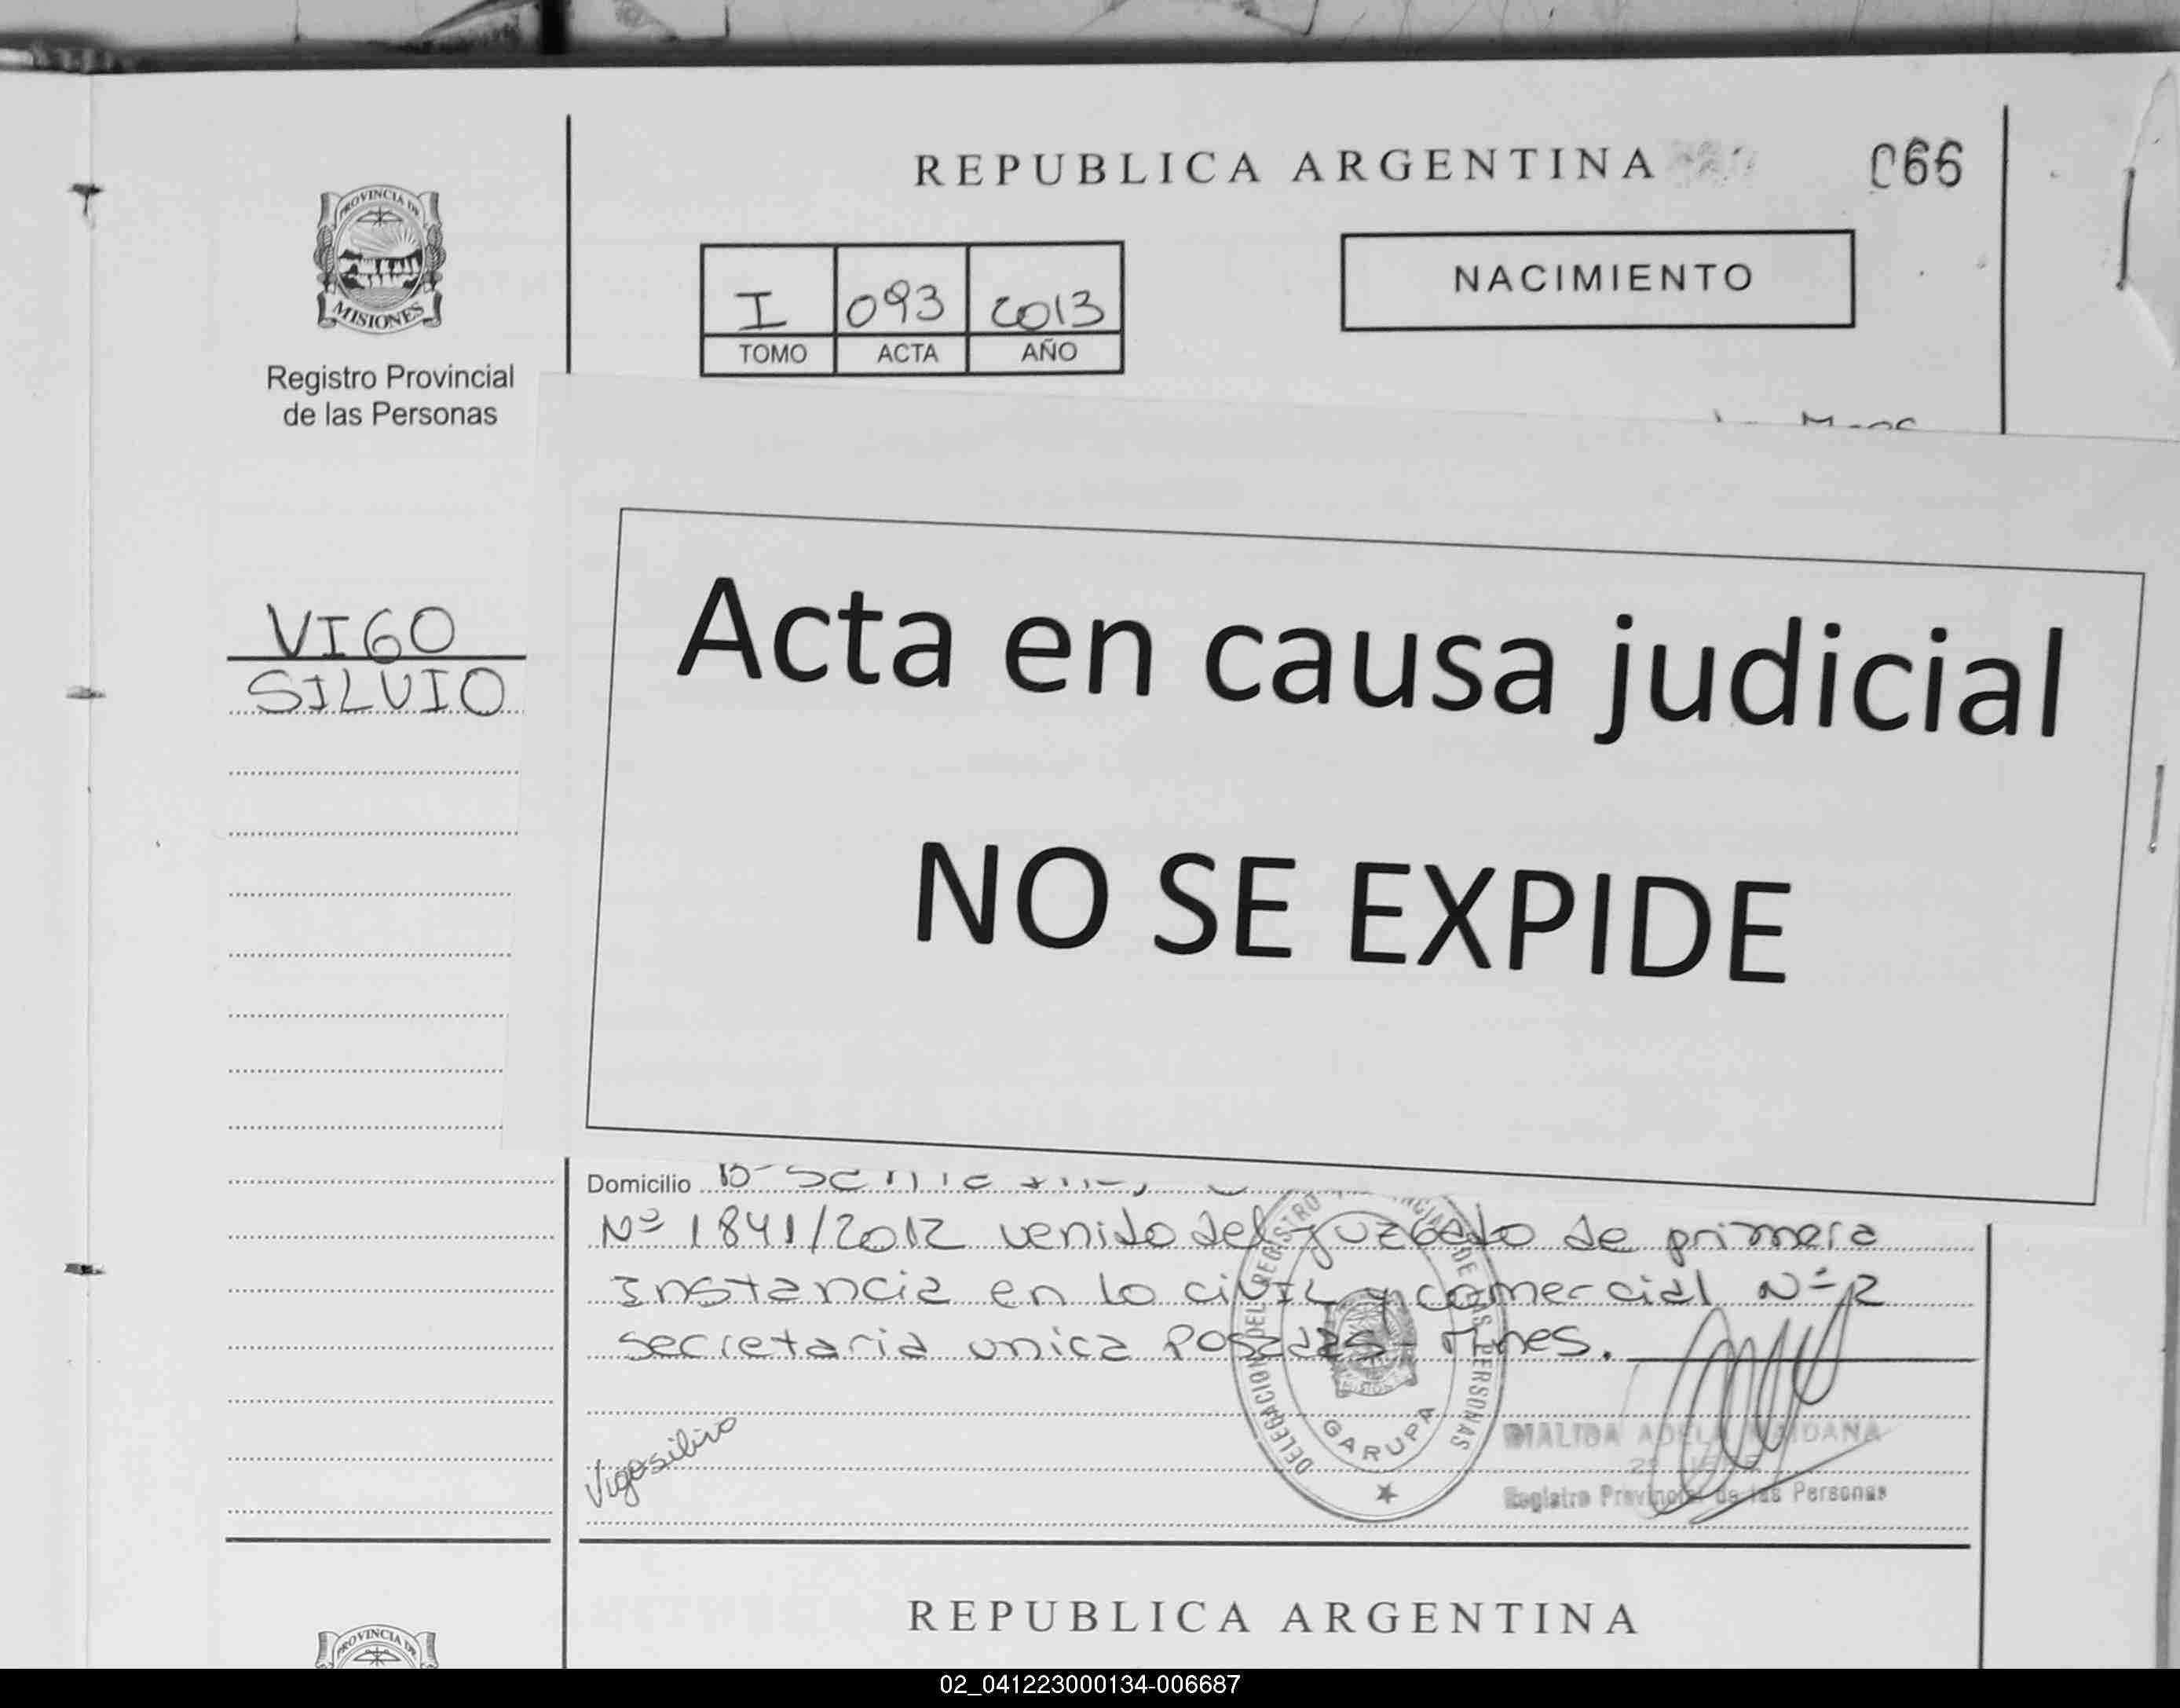 REPUBLICA ARGENTINA
066
PROVINCIA DE
MISIONES
Registro Provincial
de las Personas
I 093 2013
TOMO ACTA AÑO
NACIMIENTO
VIGO
SILVIO
Acta en causa judicial
NO SE EXPIDE
Domicilio
Nº 1841/2012 venido del juzgado de primera
Instancia en lo civil y comercial Nº 2
secretaria unica Posadas - Mnes.
Vigo silvio
DELEGACION DEL REGISTRO PROVINCIAL DE LAS PERSONAS
GARUPA
ADELA MAIDANA
Registro Provincial de las Personas
REPUBLICA ARGENTINA
PROVINCIA DE
02_041223000134-006687